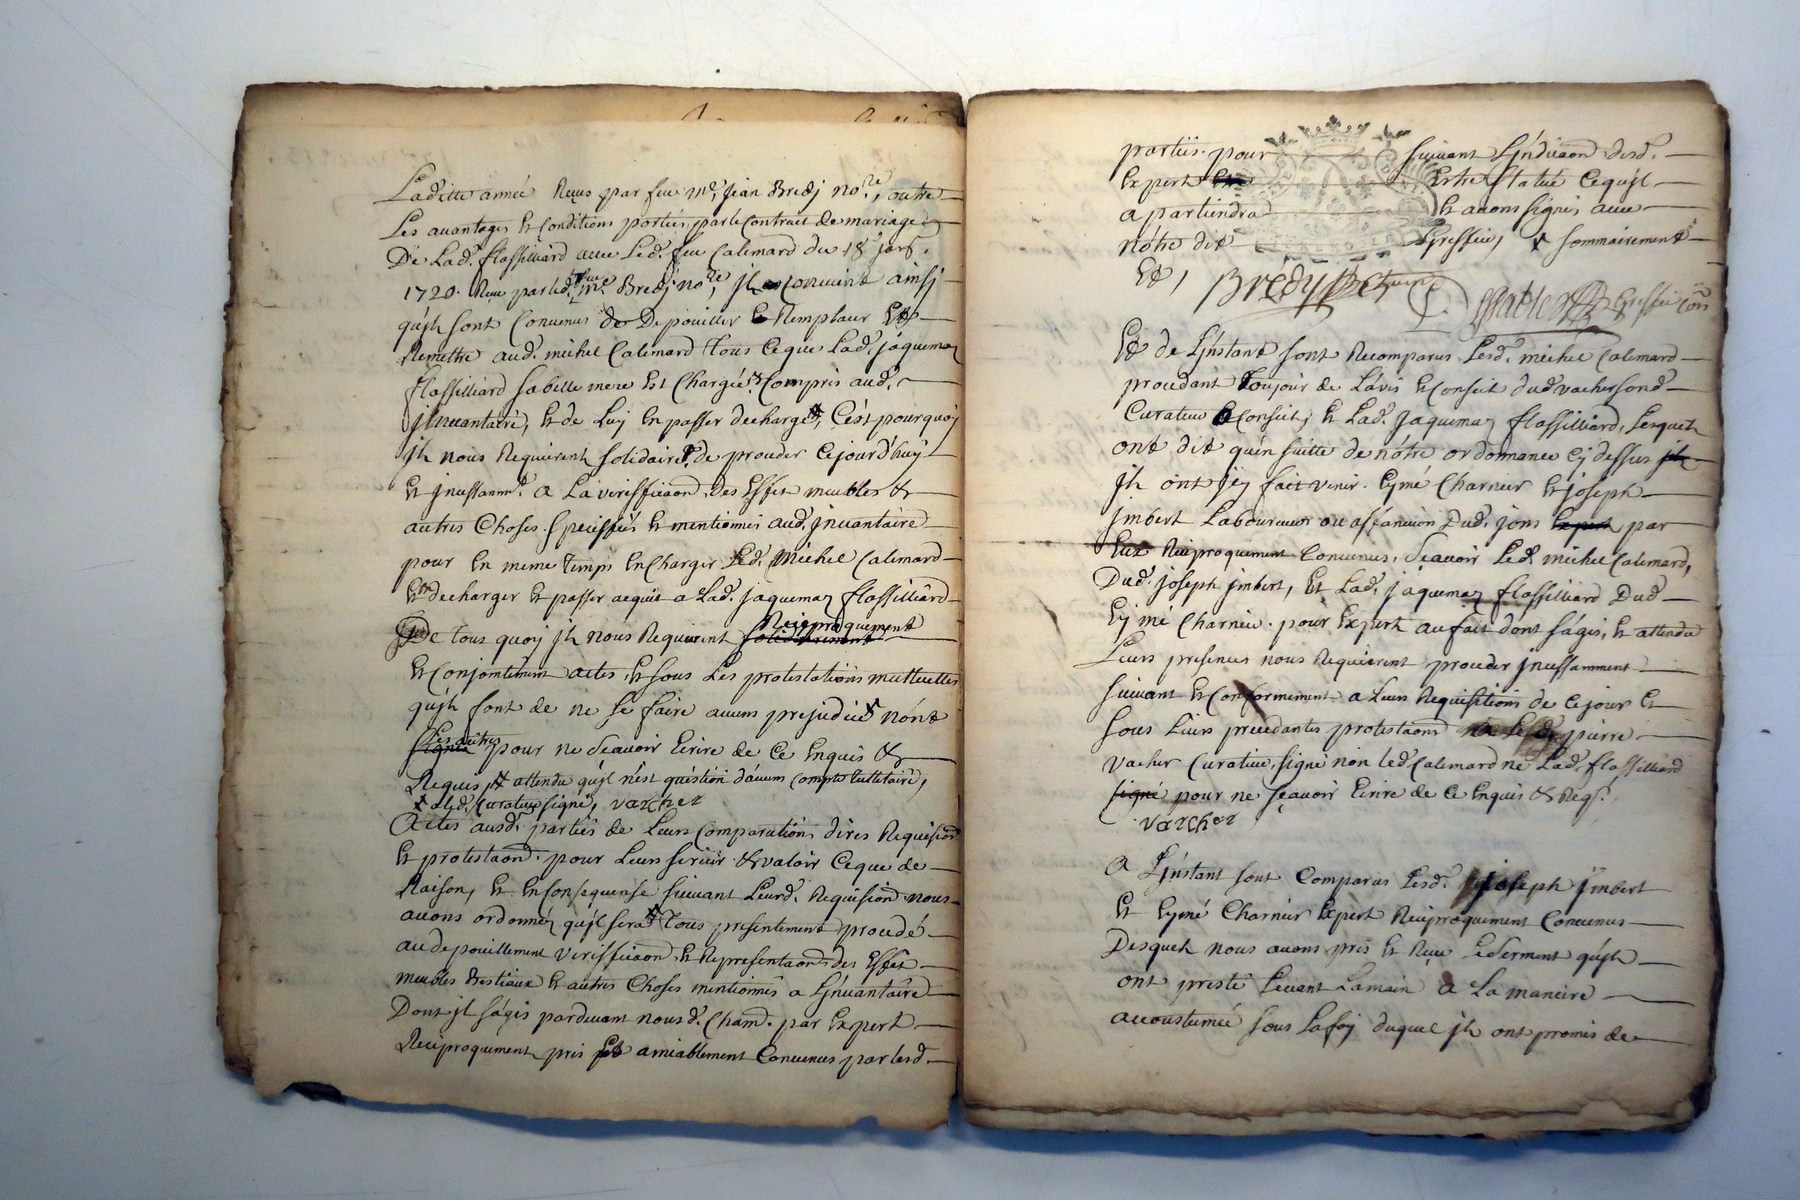 Laditte année Reçus par feu me. Jean Bredy nore, outre
Les auantages et Conditions portées par le Contrait de mariage
De Lad. flassilliard auec Led. feu Calemard du 18e
1720. Reçu par led. feu me. Bredy nore, jl Conuient ainsj
qu'jls sont Conuenus de Depouiller et Remplacer Et
Remettre aud. michel Calemard tous Ce que Lad. jaquemaz
flassilliard sa belle mere Est Chargée Compris aud.
jnuantaire, Et de Luy En passer decharge, C'est pourquoy
jls nous Requierent solidairet. de proceder Cejourd'huy
Et jncessamt. a La verifficaon des Effet meubles &
autres Choses speciffiés Et mentionnés aud. jnuantaire
pour En meme temps En Charger Led. Michel Calemard
En decharger Et passer acquit a Lad. jaquemaz flassilliard
De tous quoy jls nous Requierent solidairement Reciproquement
Et Conjointement actes, Et sous Les protestations mutuelles
qu'jls font de ne se faire aucuns prejudice n'ont
signé Les autres pour ne sçauoir Ecrire de Ce Enquis &
Requis attendu qu'jl n'est question d'aucun Compte tutelaire,
Led. Curateur signé, varcher
Actes ausd. parties de Leurs Comparutions dires Requisions
Et protestaons. pour Leurs seruir & valoir Ce que de
Raison, Et En Consequense suiuant Leurd. Requision nous
auons ordonnéz qu'jl sera tous presentement procedé
au depouillement verifficaon Et Representaons des Effet
meubles Bestiaux Et autres Choses mentionnés a L'jnuantaire
Dont jl s'agis parduant nousd. Cham. par Expert
Reciproquement pris Et amiablement Conuenus par lesd.
parties pour suiuant L'jndicaon desd.
Expert Estre statué Ce qu'jl
apartiendra Et auons signés auec
nôtre dit Greffier, sommairement
Et, Bredy
Et de L'jnstant sont Recomparus Lesd. michel Calemard
procedant toujour de L'avis Et Conseit dud vacher sond
Curateur Conseit, Et Lad. Jaquemaz flassilliard, Lesquels
ont dit qu'en suitte de nôtre ordonnance Cy dessus jls
jls ont jcy fait venir Eymé Charnier Et joseph
jmbert Laboureurs Dud. jons Expert par
Eux Reciproquement Conuenus, sçauoir Led. michel Calemard,
Dud. joseph jmbert, Et Lad. jaquemaz flassilliard Dud
Eymé Charnier pour Expert au fait dont s'agis, Et attendu
Leurs presences nous Requierent proceder jncessamment
suiuant Et Conformement a Leurs Requisitions de Cejour Et
sous Leurs precedantes protestaons pierre
vacher Curateur, signé non led. Calemard ne Lad. flassilliard
signé pour ne sçauoir Ecrire de Ce Enquis & Reqs.
varcher
A L'jnstant sont Comparus Lesd. joseph jmbert
Et Eymé Charnier Expert Reciproquement Conuenus
Desquels nous auons pris Et Reçu Le serment qu'jls
ont presté Leuant La main a La maniere
accoustumée sous La foy duquel jls ont promis de